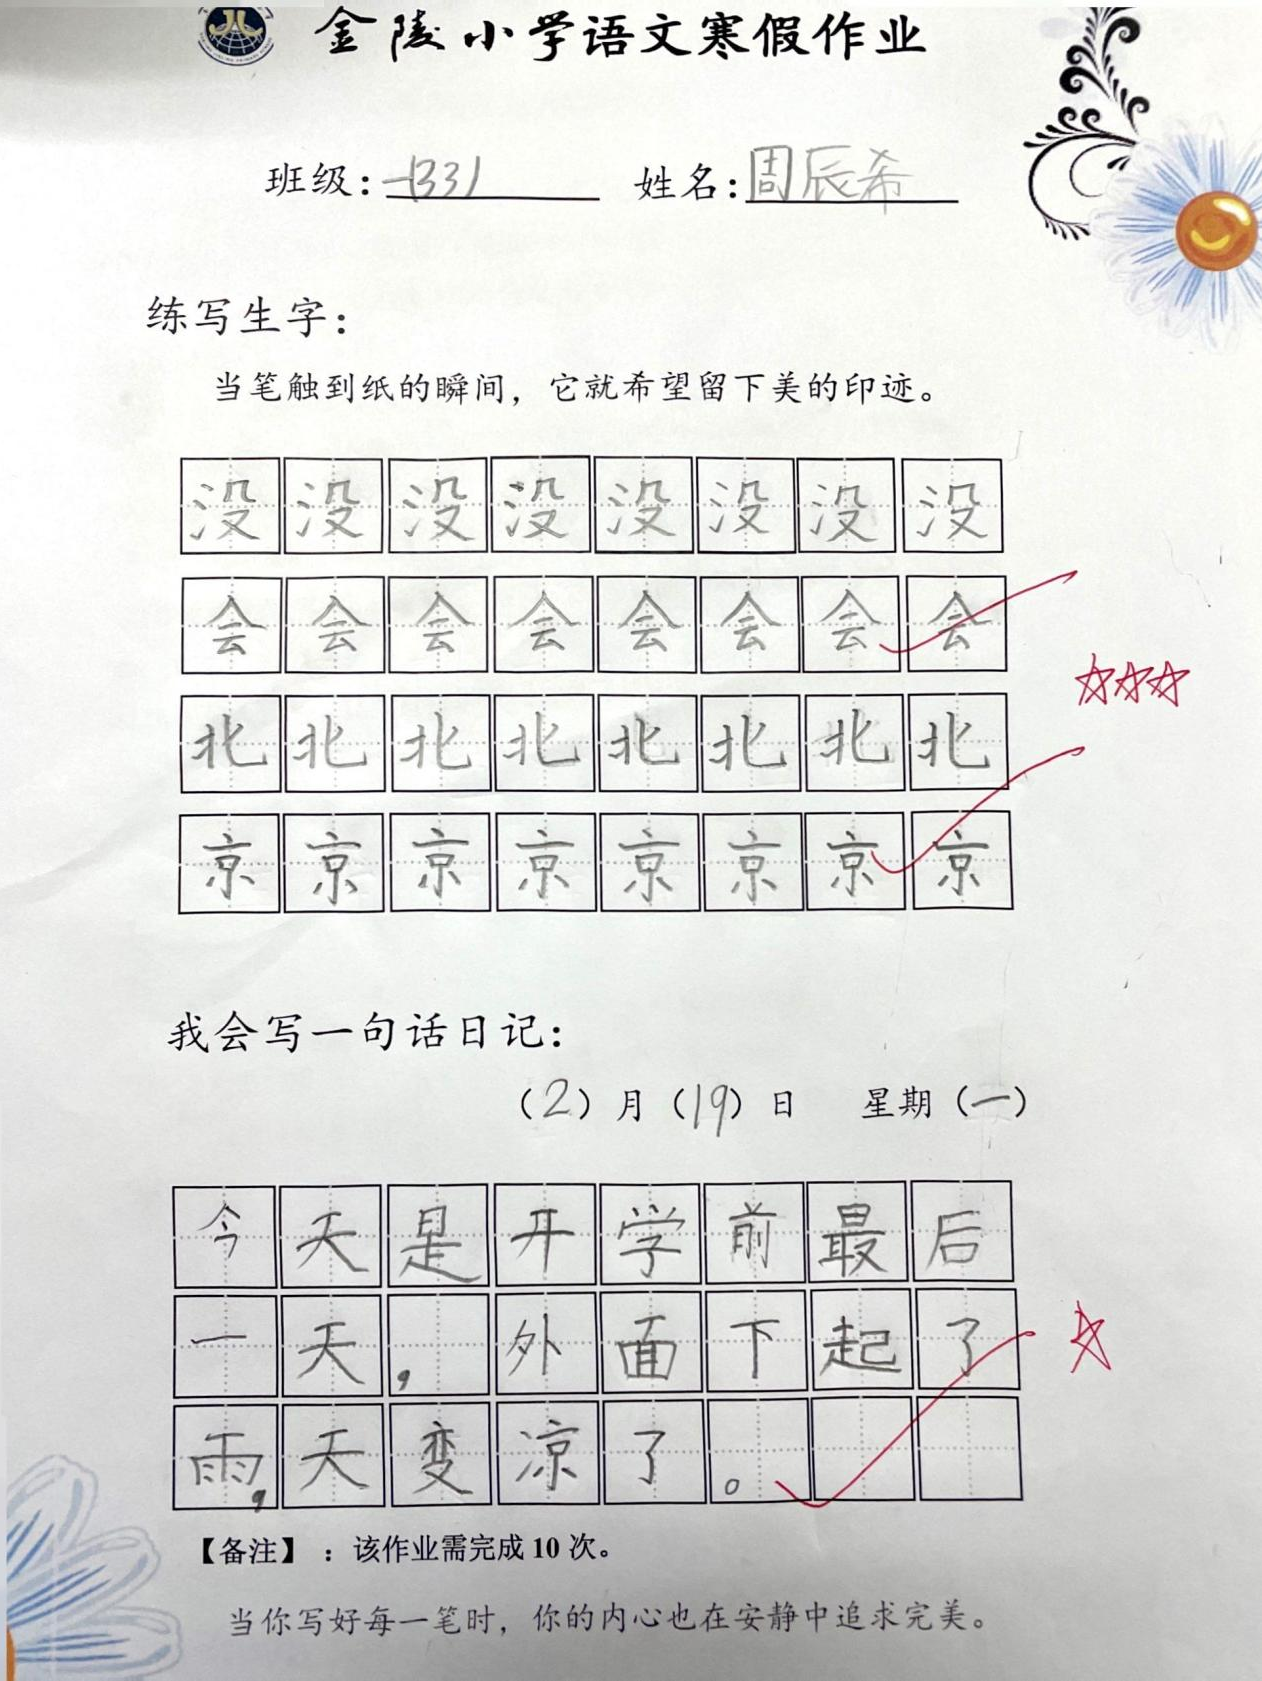 金陵小学语文寒假作业
班级:一(33) 姓名:周辰希
练写生字:
当笔触到纸的瞬间,它就希望留下美的印迹。
没没没没没没没没
会会会会会会会会
北北北北北北北北
京京京京京京京京
我会写一句话日记:
(2)月(19)日 星期(一)
今天是开学前最后
一天,外面下起了
雨,天变凉了。
【备注】:该作业需完成10次。
当你写好每一笔时,你的内心也在安静中追求完美。